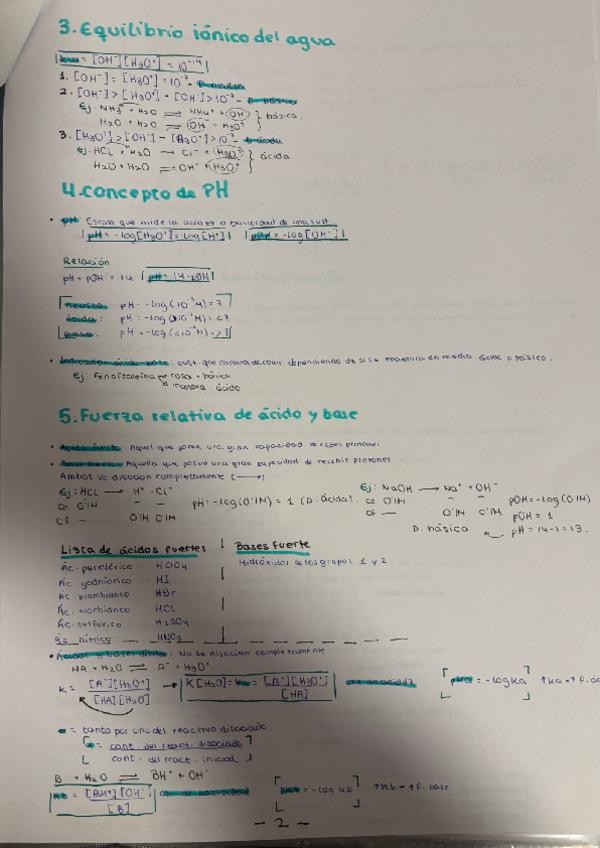 3. Equilibrio iónico del agua
Kw = [OH⁻][H₃O⁺] = 10⁻¹⁴
1. [OH⁻] = [H₃O⁺] = 10⁻⁷ - D. neutra
2. [OH⁻] > [H₃O⁺] - [OH⁻] > 10⁻⁷ - D. básica
Ej. NH₃ + H₂O ⇌ NH₄⁺ + OH⁻
H₂O + H₂O ⇌ OH⁻ + H₃O⁺ } básica
3. [H₃O⁺] > [OH⁻] - [H₃O⁺] > 10⁻⁷ - D. ácida
ej. HCL + H₂O → Cl⁻ + H₃O⁺
H₂O + H₂O ⇌ OH⁻ + H₃O⁺ } ácida
4. concepto de PH
• pH: Escala que mide la acidez o basicidad de una sust.
pH = -log[H₃O⁺] = -log[H⁺] pOH = -log[OH⁻]
Relación
pH + pOH = 14 pH = 14 - pOH
neutra: pH = -log(10⁻⁷M) = 7
ácida: pH = -log(>10⁻⁷M) = <7
base: pH = -log(<10⁻⁷M) = >7
• Indicador ácido-base: sust. que cambia de color dependiendo de si se encuentra en medio ácido o básico.
Ej Fenolftaleína rosa → básico
incolora → ácido
5. Fuerza relativa de ácido y base
• Ácido fuerte: Aquel que posee una gran capacidad de ceder protones
• Base fuerte: Aquella que posee una gran capacidad de recibir protones
Ambos se disocian completamente (⟶)
Ej: HCL → H⁺ + Cl⁻ Ej: NaOH → Na⁺ + OH⁻
Co 0'1M — — pH = -log(0'1M) = 1 (D. ácida). Co 0'1M — — pOH = -log(0'1M)
Cf — 0'1M 0'1M Cf — 0'1M 0'1M pOH = 1
D. básica pH = 14-1 = 13.
Lista de ácidos fuertes Bases fuerte
Ác. perclórico HClO₄ Hidróxidos de los grupos 1 y 2
Ác. yodhídrico HI
Ác. bromhídrico HBr
Ác. clorhídrico HCL
Ác. sulfúrico H₂SO₄
Ác. nítrico HNO₃
• Ácidos y bases débiles: No se disocian completamente
HA + H₂O ⇌ A⁻ + H₃O⁺
K = [A⁻][H₃O⁺] / [HA][H₂O] → K[H₂O] = Ka = [A⁻][H₃O⁺] / [HA] cte de acidez pKa = -log Ka ↑Ka → ↑f. ác
α = tanto por uno del reactivo disociado
α = cant. del react. disociado
cant. del react. inicial
B + H₂O ⇌ BH⁺ + OH⁻
Kb = [BH⁺][OH⁻] / [B] cte de basicidad pKb = -log Kb ↑Kb → ↑f. base
- 2 -